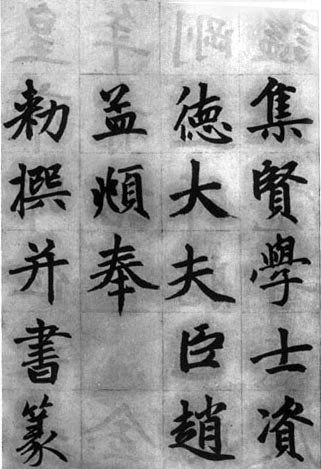 集賢學士資
徳大夫臣趙
孟頫奉
勅撰并書篆